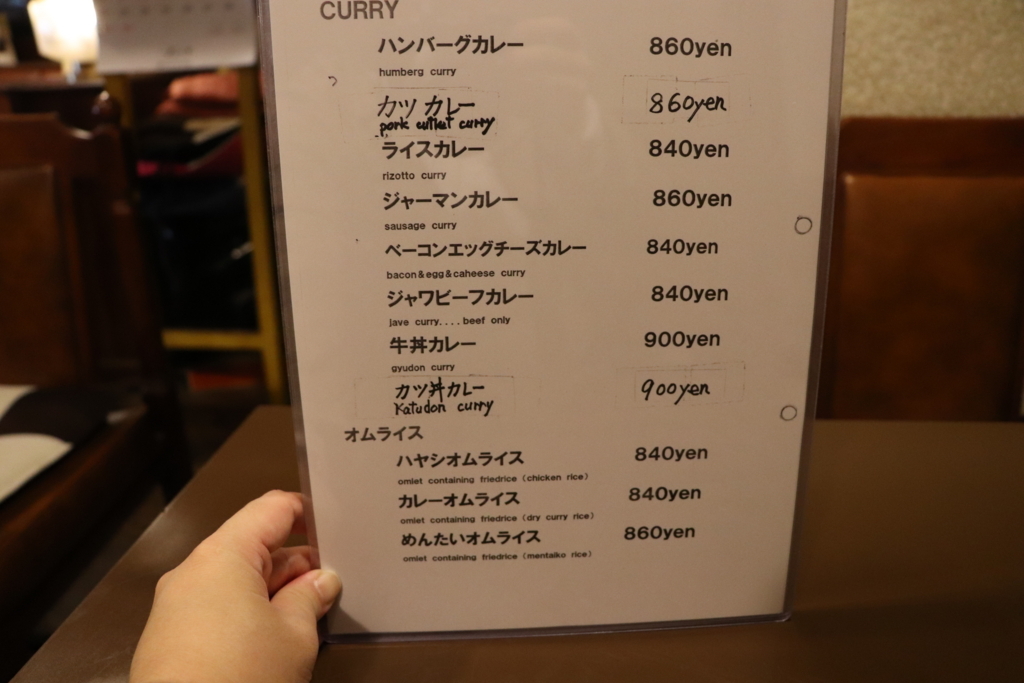 CURRY
ハンバーグカレー 860yen
humberg curry
カツ カレー 860yen
pork cutlet curry
ライスカレー 840yen
rizotto curry
ジャーマンカレー 860yen
sausage curry
ベーコンエッグチーズカレー 840yen
bacon&egg&caheese curry
ジャワビーフカレー 840yen
jave curry....beef only
牛丼カレー 900yen
gyudon curry
カツ丼カレー 900yen
Katudon curry
オムライス
ハヤシオムライス 840yen
omlet containing friedrice (chicken rice)
カレーオムライス 840yen
omlet containing friedrice (dry curry rice)
めんたいオムライス 860yen
omlet containing friedrice (mentaiko rice)